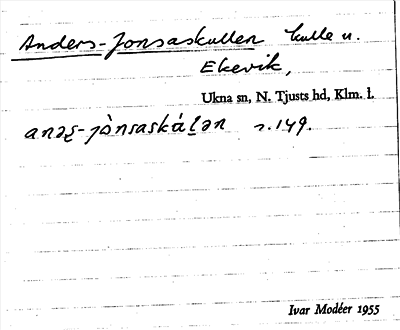 Anders-Jonsaskullen kulle u.
Ekevik,
Ukna sn, N. Tjusts hd, Klm. l.
anəʂ-jònsaskáḷən r. 149.
Ivar Modéer 1955